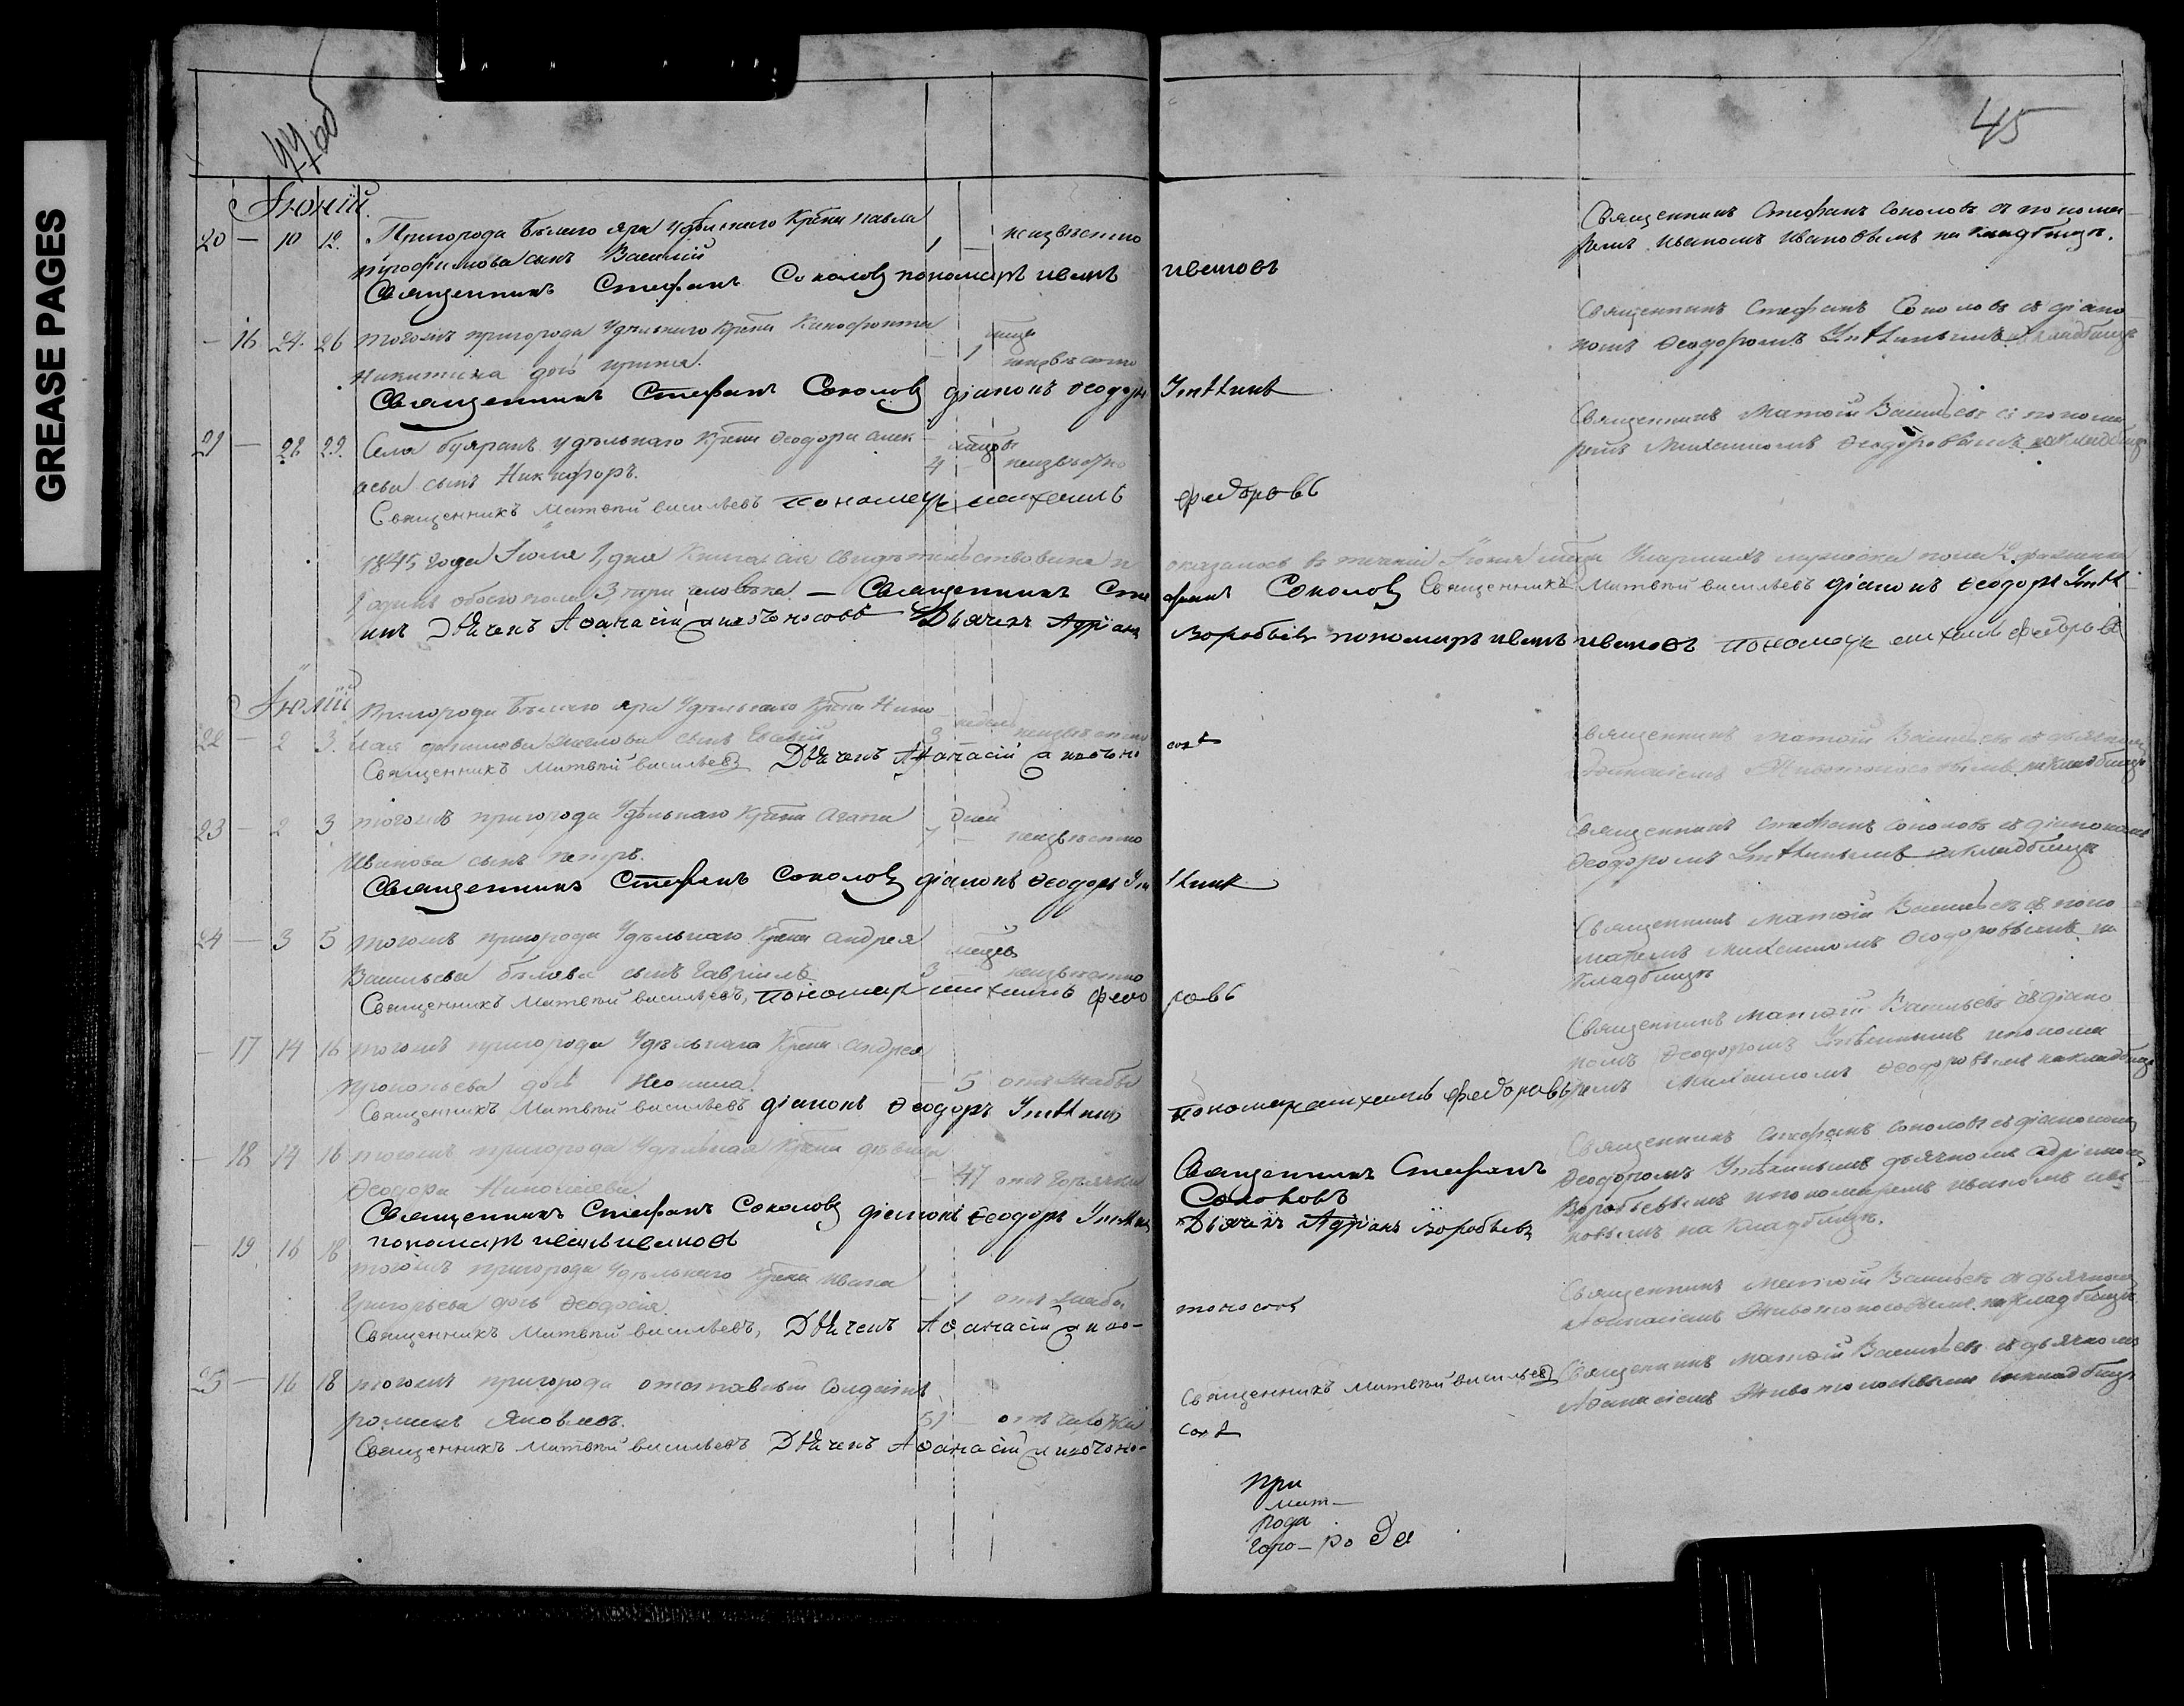 GREASE PAGES
44об
45
Іюній.
20 — 10 12. Пригорода Бѣлаго яра удѣльнаго Крѣна Павла
Трофимова сынъ Василій 1 — неизвѣстно
Священникъ Стефанъ Соколовъ пономарь иванъ ивановъ
Священникъ Стефанъ Соколовъ съ понома
ремъ Иваномъ Ивановымъ на кладбищѣ.
— 16 24. 26 тогожъ пригорода Удѣльнаго Крѣна Ксенофонта
Никитина дочь — 1 неизвѣстно
Священникъ Стефанъ Соколовъ діаконъ Ѳеодоръ
Священникъ Стефанъ Соколовъ съ діако
номъ Ѳеодоромъ кладбищѣ
21 — 28 29. Села удѣльнаго Крѣна Ѳеодора Алек
сѣева сынъ Никифоръ. 4 — неизвѣстно
Священникъ Матвѣй васильевъ пономарь михаилъ федоровъ
Священникъ Матѳій Васильевъ съ понома
ремъ Михаиломъ Ѳеодоровымъ на кладбищѣ
1845 года Іюля 1, дня Книга сія свидѣтельствована и оказалось въ теченіи Іюня умершихъ мужеска пола 2,
1 одинъ обоего пола 3, три человѣка. — Священникъ Стефанъ Соколовъ Священникъ Матвѣй васильевъ діаконъ Ѳеодоръ
Дьячекъ Аѳанасій Животоносовъ Дьячекъ Адріанъ Воробьевъ пономарь иванъ ивановъ пономарь михаилъ федоровъ
Іюлій
Пригорода Бѣлаго яра Удѣльнаго Крѣна Нико
22 — 2 3. лая сынъ 3 — неизвѣстно
Священникъ Матвѣй васильевъ Дьячекъ Аѳанасій Животоно совъ
Священникъ Матѳій Васильевъ съ дьячкомъ
Аѳанасіемъ Животоносовымъ на кладбищѣ
23 — 2 3 тогожъ пригорода Удѣльнаго Крѣна Агапа дней
Иванова сынъ Петръ. 7 — неизвѣстно
Священникъ Стефанъ Соколовъ діаконъ Ѳеодоръ
Священникъ Стефанъ Соколовъ съ діакономъ
Ѳеодоромъ на кладбищѣ
24 — 3 5 тогожъ пригорода Удѣльнаго Крѣна Андрея мѣсяцев
Васильева Бѣлова сынъ Гавріилъ 3 — неизвѣстно
Священникъ Матвѣй васильевъ, пономарь михаилъ федо ровъ
Священникъ Матѳій Васильевъ съ поно
маремъ Михаиломъ Ѳеодоровымъ на
кладбищѣ
— 17 14 16 тогожъ пригорода Удѣльнаго Крѣна Андрея
Прокопьева дочь Неонила. — 5 отъ
Священникъ Матвѣй васильевъ діаконъ Ѳеодоръ
пономарь михаилъ федоровъ
Священникъ Матѳій Васильевъ съ діако
номъ Ѳеодоромъ и понома
ремъ Михаиломъ Ѳеодоровымъ на кладбищѣ
— 18 14 16 тогожъ пригорода Удѣльная Крѣна дѣвица
Ѳеодора Николаева — 47 отъ горячки
Священникъ Стефанъ Соколовъ діаконъ Ѳеодоръ
пономарь иванъ ивановъ
Священникъ Стефанъ
Соколовъ
Дьячекъ Адріанъ Воробьевъ
Священникъ Стефанъ Соколовъ съ діакономъ
Ѳеодоромъ дьячкомъ Адріаномъ
Воробьевымъ и пономаремъ Иваномъ Ива
новымъ на кладбищѣ.
— 19 16 18
тогожъ пригорода Удѣльнаго Крѣна Ивана
Григорьева дочь Ѳеодосія. — 1 отъ
Священникъ Матвѣй васильевъ, Дьячекъ Аѳанасій Живо- тоносовъ
Священникъ Матѳій Васильевъ съ дьячкомъ
Аѳанасіемъ Животоносовымъ на кладбищѣ
25 — 16 18 тогожъ пригорода отставный Солдатъ
Романъ Яковлевъ. 51 — отъ чахотки
Священникъ Матвѣй васильевъ Дьячекъ Аѳанасій Животоно- совъ
Священникъ Матвѣй васильевъ
Священникъ Матѳій Васильевъ съ дьячкомъ
Аѳанасіемъ Животоносовымъ на кладбищѣ
при
рода
горо- рода